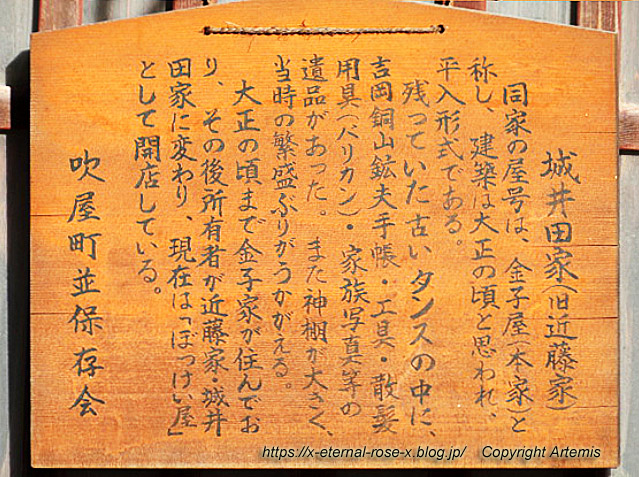 城井田家(旧近藤家)
同家の屋号は、金子屋(本家)と
称し、建築は大正の頃と思われ、
平入形式である。
残っていた古いタンスの中に、
吉岡銅山鉱夫手帳・工具・散髪
用具(バリカン)・家族写真等の
遺品があった。また神棚が大きく、
当時の繁盛ぶりがうかがえる。
大正の頃まで金子家が住んでお
り、その後所有者が近藤家・城井
田家に変わり、現在は「ぼっけい屋」
として開店している。
吹屋町並保存会
https://x-eternal-rose-x.blog.jp/ Copyright Artemis